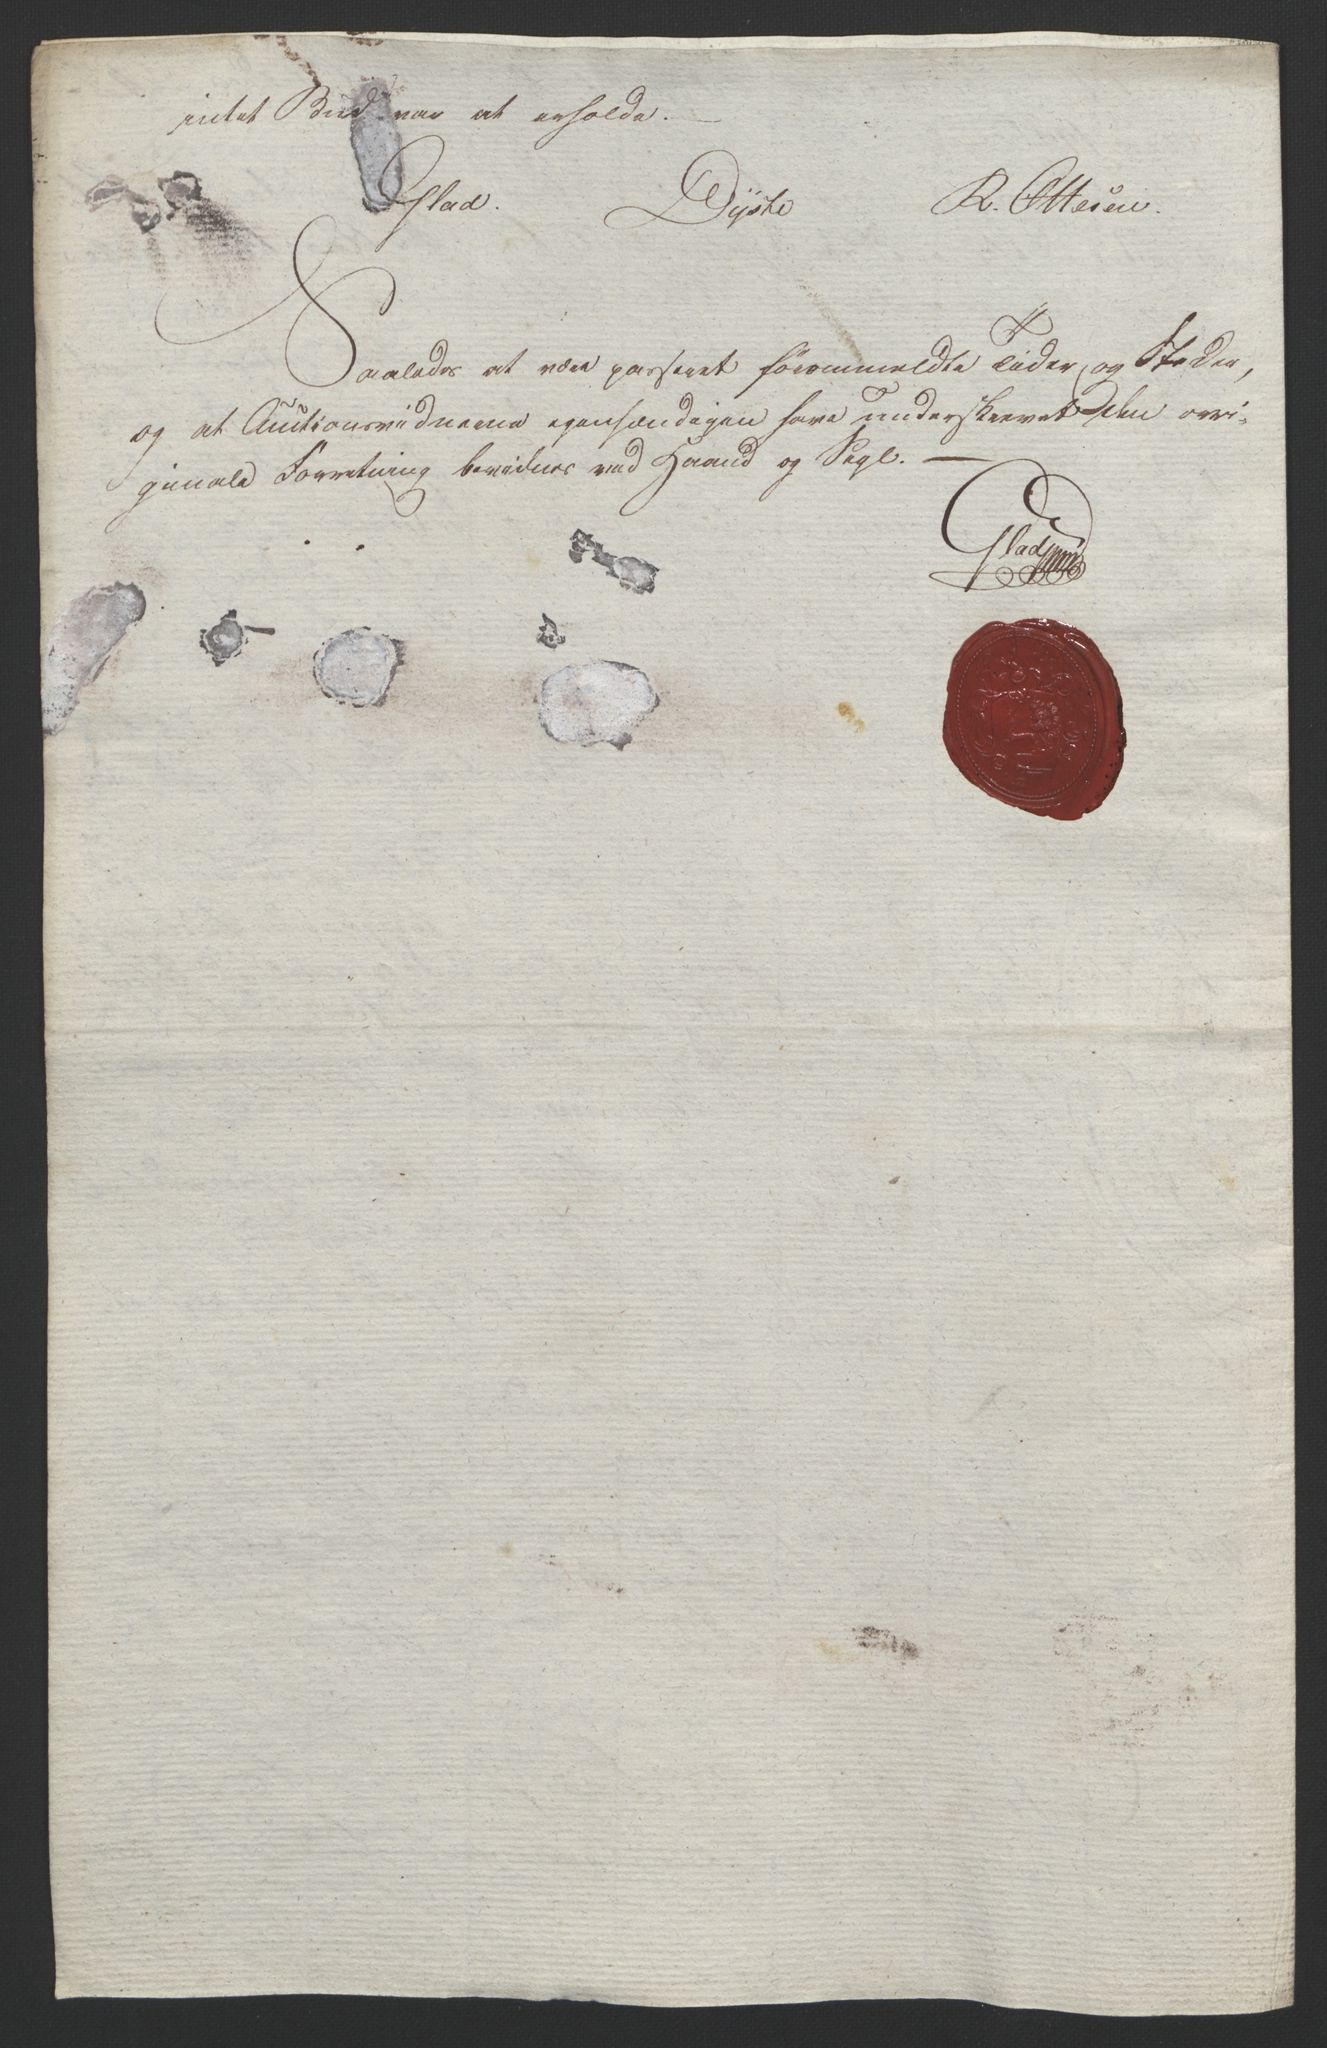 intet Bud var at erholde. —
Glad. Dyshe R. Ottesen.
Saaledes at være passeret forommeldte Tider og Steder,
og at Auctionsvidnerne egenhændigen have underskrevet den orri-
ginale Forretning bevidnes ved Haand og Segl. —
Glad